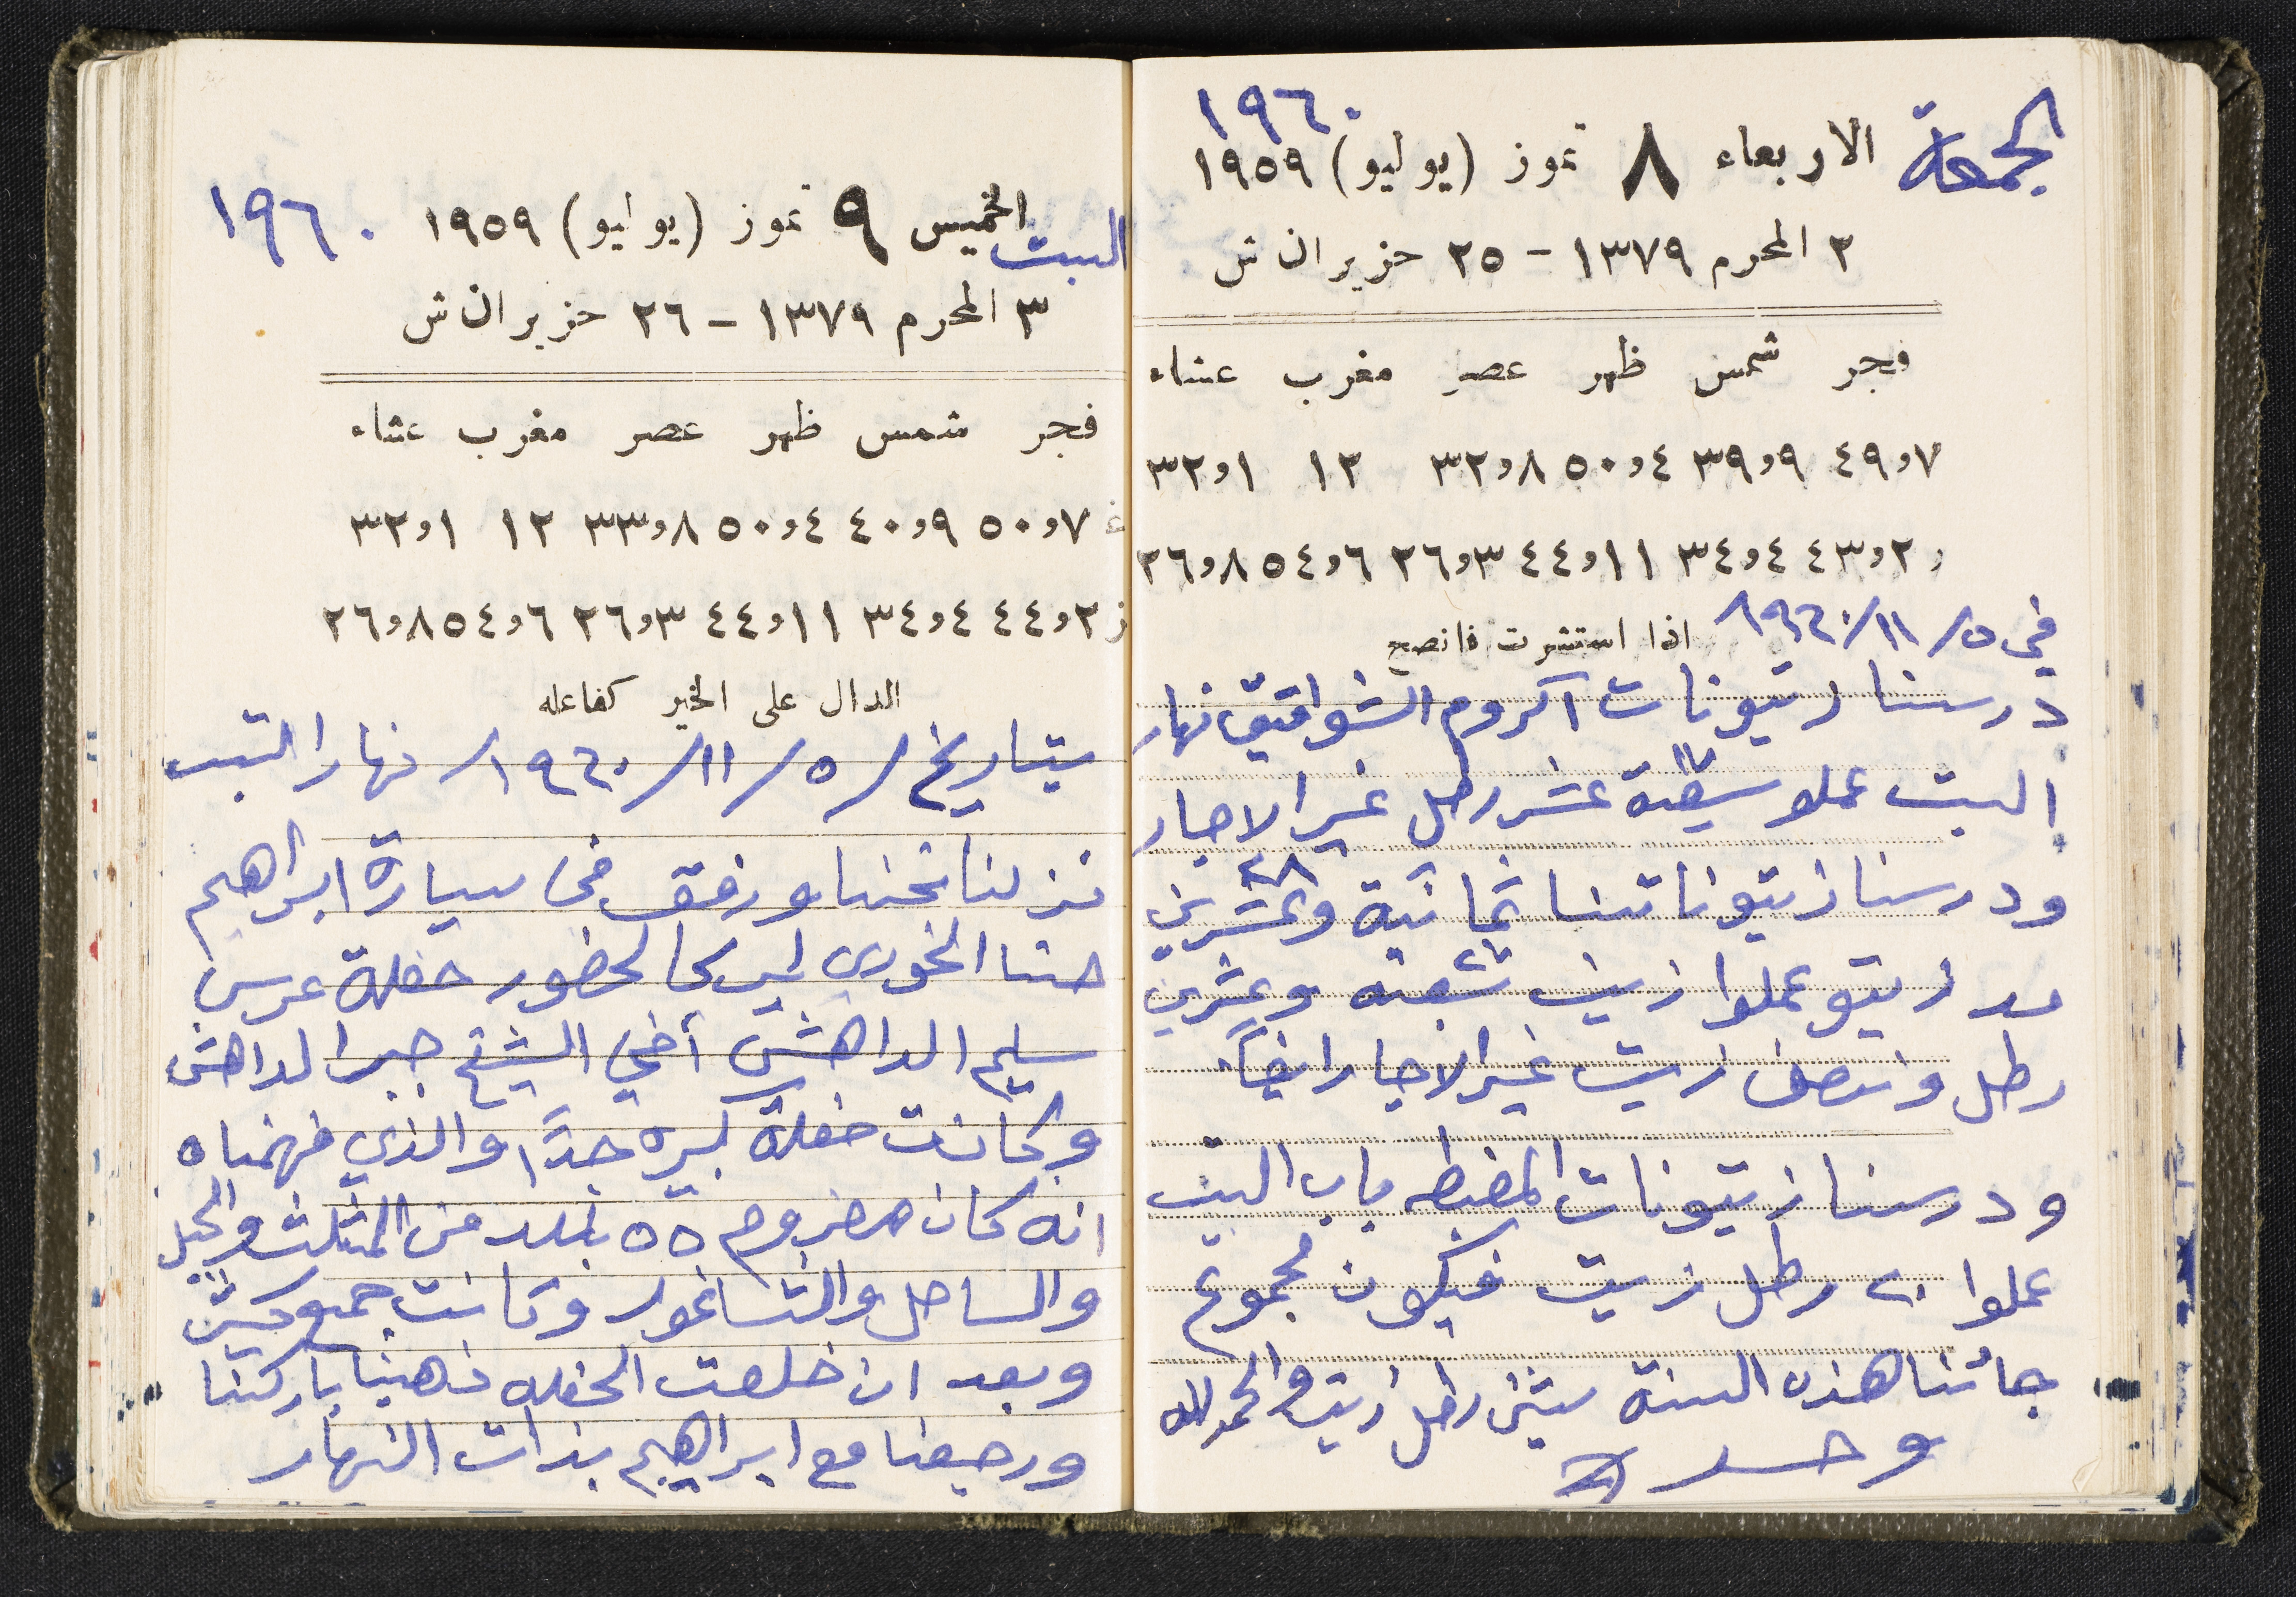 ١٩٦٠
الجمعة الاربعاء ٨ تموز (يوليو) ١٩٥٩
٢ المحرم ١٣٧٩ - ٢٥ حزيران ش
فجر شمس ظهر عصر مغرب عشاء
٧و٤٩ ٩و٣٩ ٤و٥٠ ٨و٣٢ ١٢ ١و٣٢
٢و٤٣ ٤و٣٤ ١١و٤٤ ٣و٢٦ ٦و٥٤ ٨و٢٦
في ٥/١١/١٩٦٠ اذا استشرت فانصح
درسنا زيتونات اكروم الشواقيق نهار
السبت عملو ستة عشر رطل غير الاجار
٢٨
ودرسنا زيتوناتنا ثمانية وعشرين
مد زيتو عملوا زيت تسعة وعشرين
رطل ونصف زيت غير الاجار ايضاً.
ودرسنا زيتونات المضبطه باب البيت
عملوا ٢٠ رطل زيت فيكون مجموع
جائنا هذه السنة رطل زيت والحمد لله
وحده
السبت الخميس ٩ تموز (يوليو) ١٩٥٩ ١٩٦٠
٣ المحرم ١٣٧٩ - ٢٦ حزيران ش
فجر شمس ظهر عصر مغرب عشاء
غ ٧و٥٠ ٩و٤٠ ٤و٥٠ ٨و٣٣ ١٢ ١و٣٢
ز ٢و٤٤ ٤و٣٤ ١١و٤٤ ٣و٢٦ ٦و٥٤ ٨و٢٦
الدال على الخير كفاعله
بتاريخ /٥/١١/١٩٦٠/ نهار السبت
نزلنا نحنا ورفق في سيارة ابراهيم
حنا الخوري ليركا لحضور حفلة عرس
سليم الداهش أخي الشيخ جبر الداهش
وكانت حفلة كبيره جداً والذي فهمناه
انه كان معزوم ٥٥ بلد من المثلث والجبل
والساحل والشاغور وكانت جموع كثيره
وبعد ان خلصت الحفله ذهبنا باركنا
ورجعنا مع ابراهيم بذات النهار